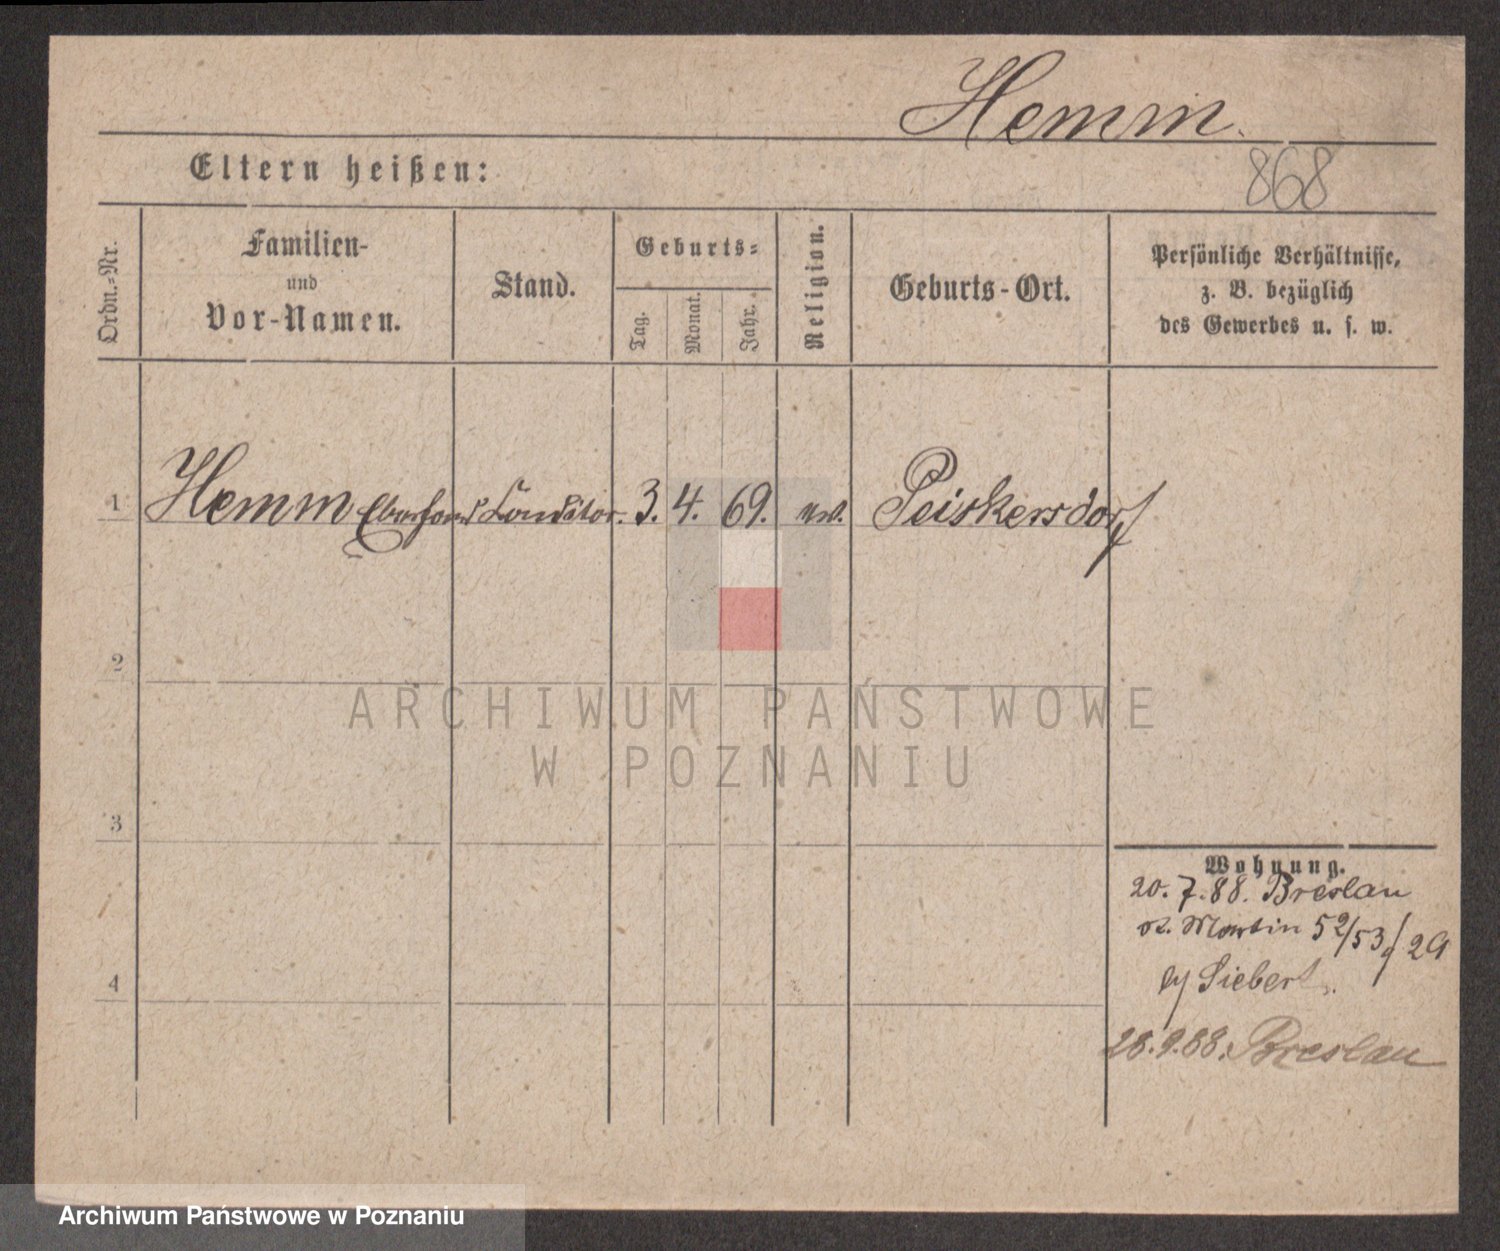 Hemm.
Eltern heißen:
868
Ordn.-Nr.
Familien-
und
Vor-Namen.
Stand.
Geburts-
Tag.
Monat.
Jahr.
Religion.
Geburts-Ort.
Persönliche Verhältnisse,
z. B. bezüglich
des Gewerbes u. s. w.
1 Hemm Conditor. 3. 4. 69. Peiskersdorf
2
3
4
Wohnung.
20. 7. 88. Breslau
St. Martin 52/53 / 29
Siebert.
28. 9. 88. Breslau
ARCHIWUM PAŃSTWOWE
W POZNANIU
Archiwum Państwowe w Poznaniu